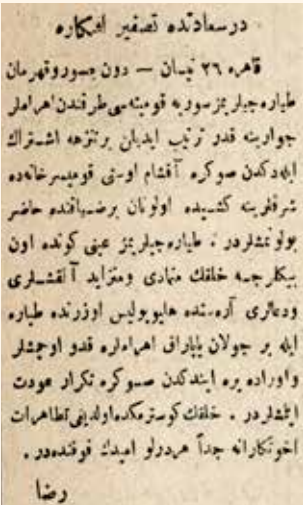 درسعادتده تصفیر افکاره
قاهره ٢٦ نیسان — دون جسور و قهرمان
طیاره جیلریمز سوریه قومیته‌سی طرفندن اهراملر
جوارینه قدر ترتیب ایدیلن بر تنزهه اشتراك
ایله‌دكدن صوكره آقشام اوستی قومیسرخانه‌ده
شرفلرینه كشیده اولونان بر ضیافتده حاضر
بولونمشلردر . طیاره جیلریمز عینی كونده اون
بیكلرجه خلقك متمادی و متزاید آلقشلری
ودعالری آره‌سنده هلیوبولیس اوزرنده طیاره
ایله بر جولان یاپارق اهراملره قدر اوچمشلر
واوراده یره ایندكدن صوكره تكرار عودت
ایتمشلردر . خلقك كوسترمكده اولدیغی تظاهرات
اخوتكارانه جداً هر درلو امیدك فوقنده‌در .
رضا